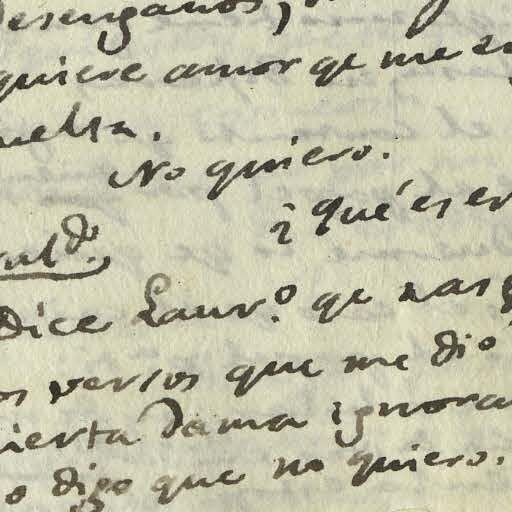 desengaños,
quiere amor qe me en
uelta.
No quiero.
¿ Qué es es
ald.º
Dice Laur.º qe
os versos que me dio
ierta Dama ignora
o digo que no quiero.